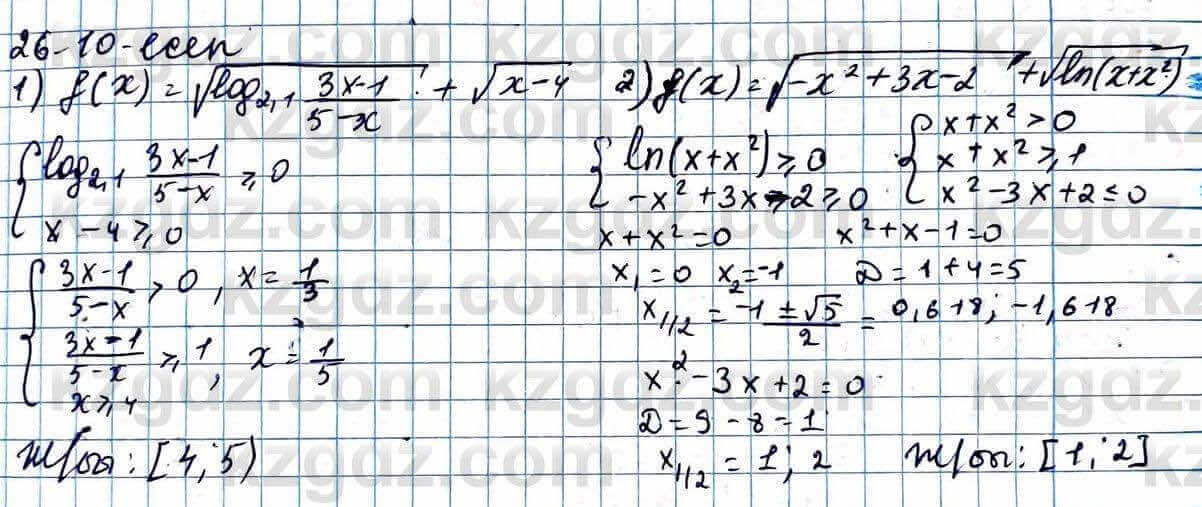 26-10-есеп
1) f(x) = √(log₂,₁ (3x-1)/(5-x)) + √(x-4)
{ log₂,₁ (3x-1)/(5-x) ⩾ 0
x - 4 ⩾ 0
{ (3x-1)/(5-x) > 0, x = 1/3
(3x-1)/(5-x) ⩾ 1, x = 1/5
x ⩾ 4
Ж/бы: [4; 5)
2) f(x) = √(-x² + 3x - 2) + √(ln(x+x²))
{ ln(x+x²) ⩾ 0
-x² + 3x - 2 ⩾ 0
{ x + x² > 0
x + x² ⩾ 1
x² - 3x + 2 ≤ 0
x + x² = 0
x₁ = 0 x₂ = -1
x² + x - 1 = 0
D = 1 + 4 = 5
x₁/₂ = (-1 ± √5)/2 = 0,618; -1,618
x² - 3x + 2 = 0
D = 9 - 8 = 1
x₁/₂ = 1; 2
Ж/бы: [1; 2]
kzgdz.com